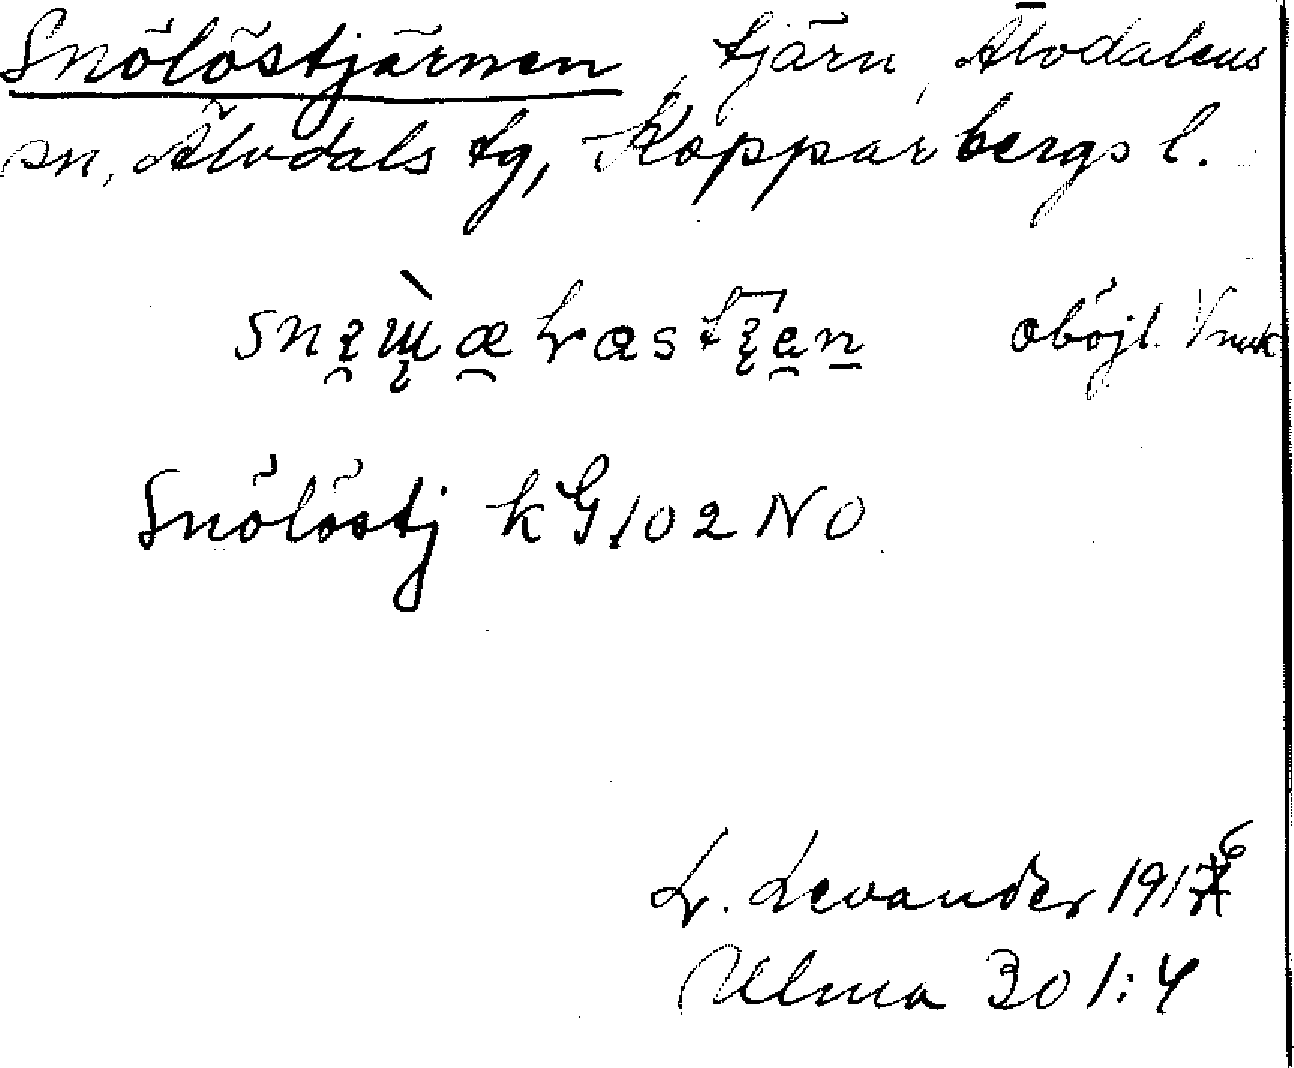 Snölöstjärnen, tjärn, Älvdalens
sn, Älvdals tg, Kopparbergs l.
oböjl.
Snölöstj kG102NO
L. Levander 1916
Ulma 301:4